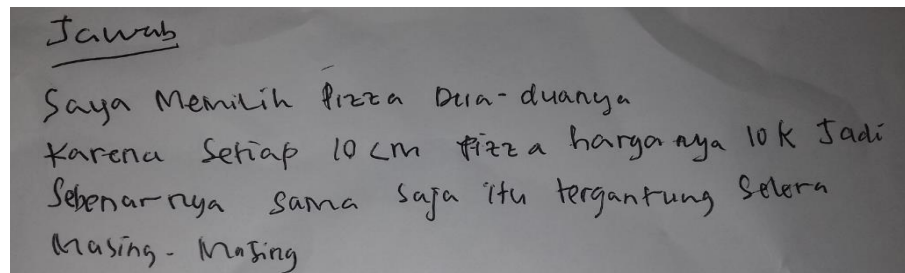 Jawab
Saya Memilih Pizza Dua-duanya
Karena Setiap 10 cm Pizza harganya 10k Jadi
Sebenarnya sama saja itu tergantung Selera
Masing-Masing